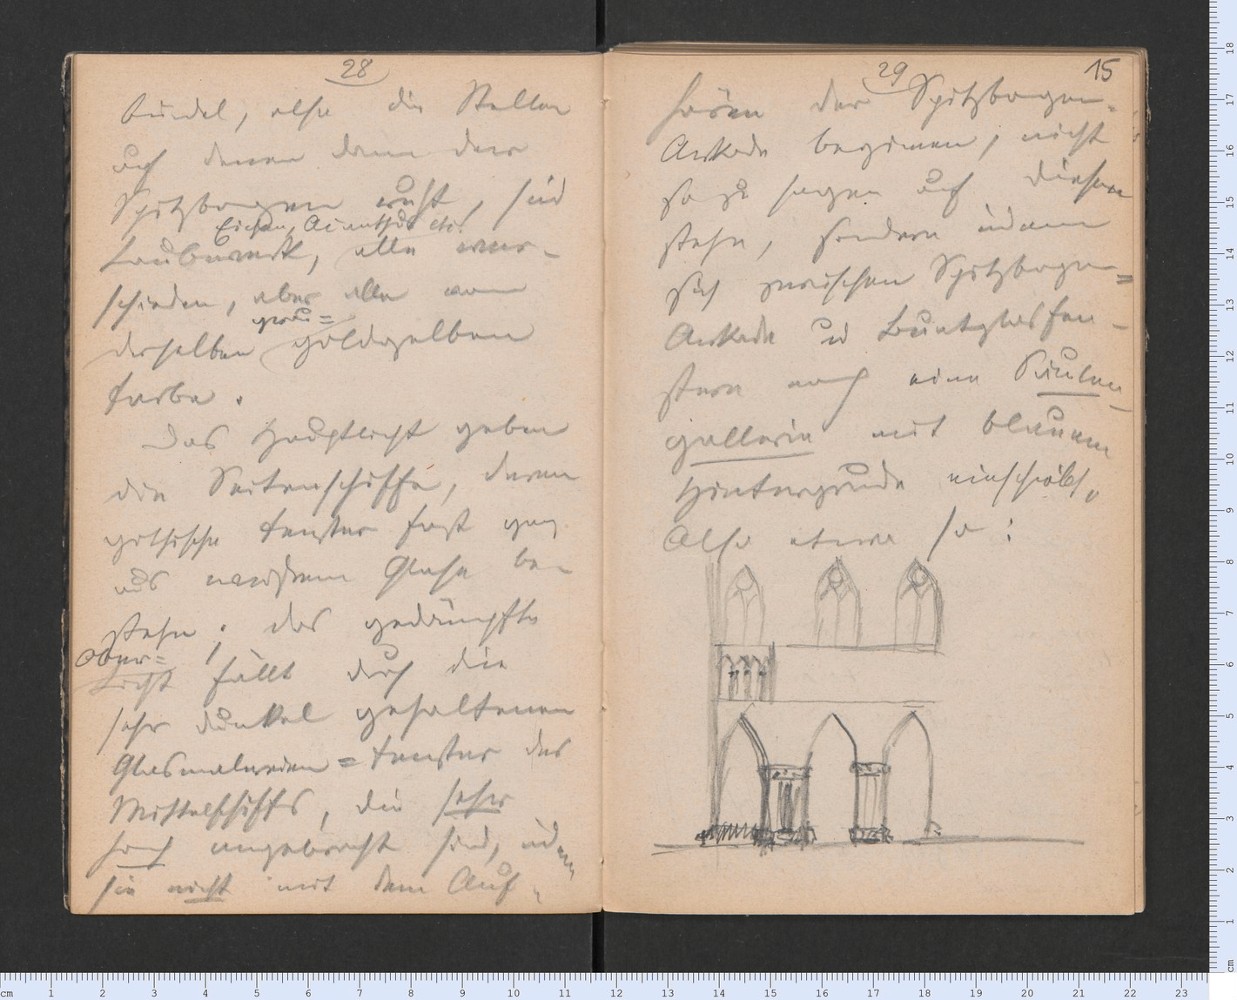 28
bündel, also die Stellen
auf denen dann der
Spitzbogen ruht, sind
Eichen, Acanthus etc.
Laubwerk, alle ver-
schieden, aber alle von
grau=
derselben goldgelben
Farbe.
Das Hauptlicht geben
die Seitenschiffe, deren
gothische Fenster fast ganz
aus weißem Glase be-
stehn; das gedämpfte
Ober=
Licht fällt durch die
sehr dunkel gehaltenen
Glasmalereien=Fenster des
Mittelschiffs, die sehr
hoch angebracht sind, indem
sie nicht mit dem Auf-
29
15
hören der Spitzbogen-
Arkade beginnen, nicht
so zu sagen auf diesen
stehn, sondern indem
sich zwischen Spitzbogen=
Arkade u Buntglasfen-
stern noch eine Säulen-
gallerie mit blauem
Hintergrunde einschiebt.
Also etwa so: